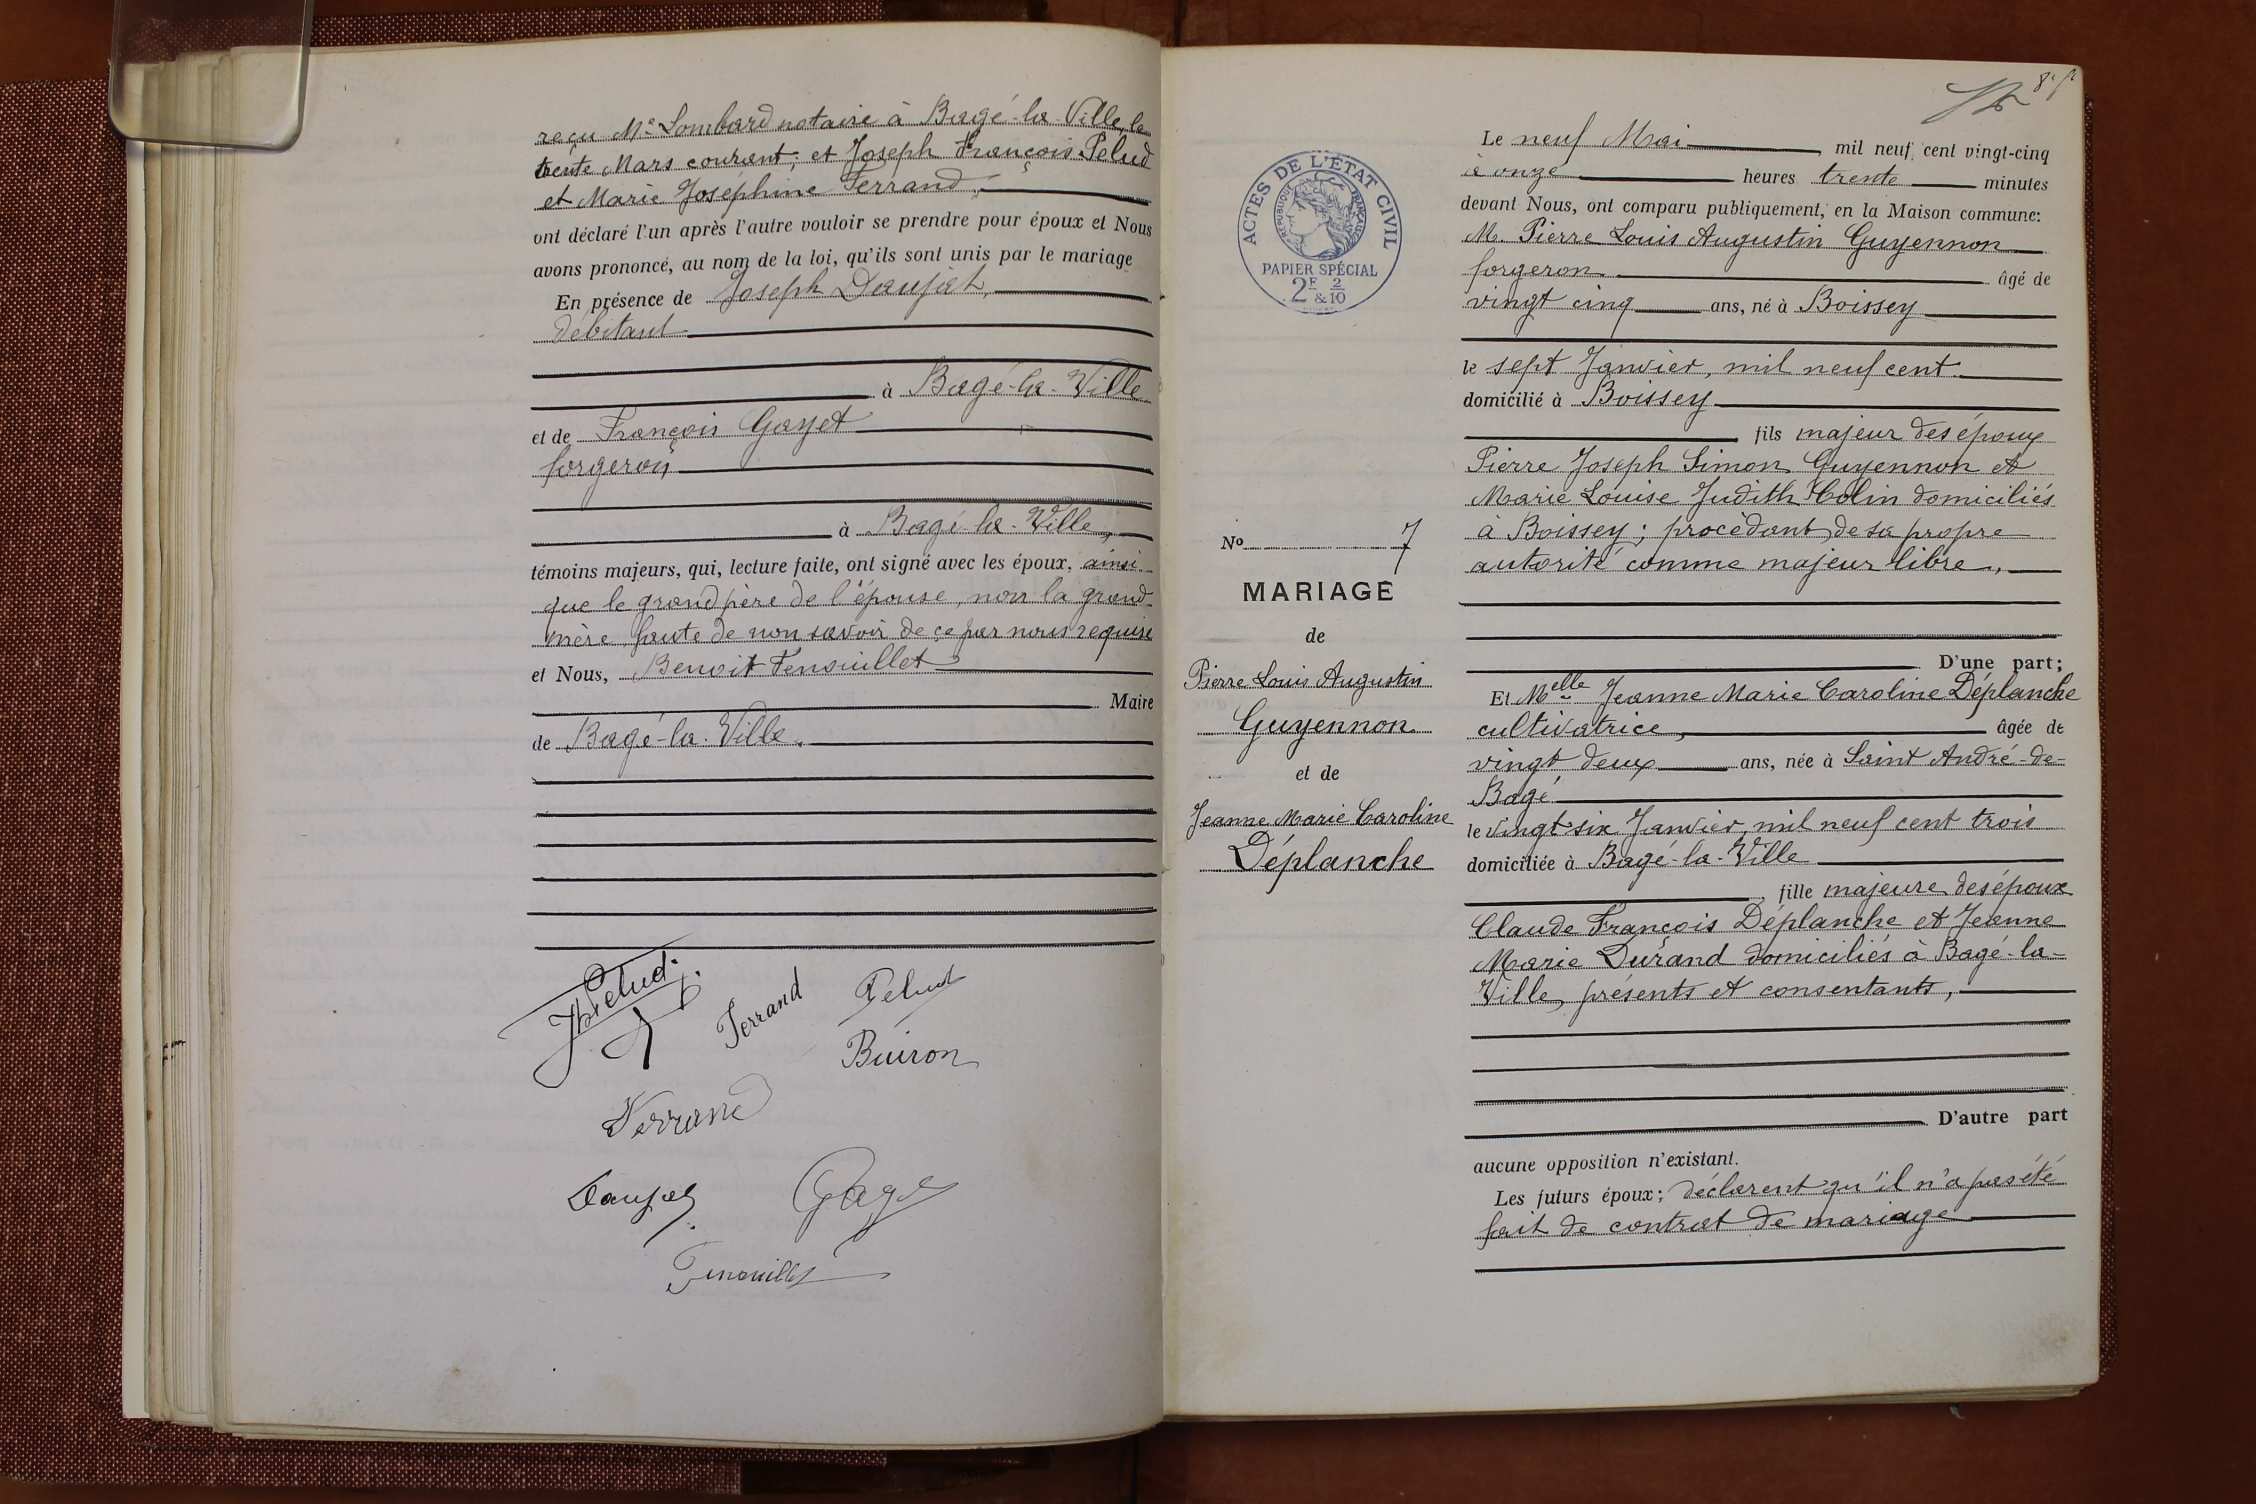 reçu Me Lombard notaire à Bagé-la-Ville, le
trente Mars courant; et Joseph François Pelud
et Marie Joséphine Ferrand,
ont déclaré l'un après l'autre vouloir se prendre pour époux et Nous
avons prononcé, au nom de la loi, qu'ils sont unis par le mariage
En présence de Joseph Daujat,
débitant
à Bagé-la-Ville
et de François Gayet
forgeron,
à Bagé-la-Ville,
témoins majeurs, qui, lecture faite, ont signé avec les époux, ainsi
que le grand père de l'épouse, non la grand-
mère, faute de non savoir de ce par nous requise
et Nous, Benoit Fenouillet
Maire
de Bagé-la-Ville.
Pelud
Ferrand
Pelud
Buiron
Ferrand
Daujat
Gayet
Fenouillet
Le neuf Mai mil neuf cent vingt-cinq
à onze heures trente minutes
devant Nous, ont comparu publiquement, en la Maison commune:
M. Pierre Louis Augustin Guyennon
forgeron âgé de
vingt cinq ans, né à Boissey
le sept Janvier, mil neuf cent
domicilié à Boissey
fils majeur des époux
Pierre Joseph Simon Guyennon et
Marie Louise Judith Colin domiciliés
à Boissey; procédant de sa propre
autorité comme majeur libre,
D'une part;
Et Melle Jeanne Marie Caroline Déplanche
cultivatrice, âgée de
vingt deux ans, née à Saint André-de-
Bagé
le vingt six Janvier, mil neuf cent trois
domiciliée à Bagé-la-Ville
fille majeure des époux
Claude François Déplanche et Jeanne
Marie Durand domiciliés à Bagé-la-
Ville, présents et consentants,
D'autre part
aucune opposition n'existant.
Les futurs époux; déclarent qu'il n'a pas été
fait de contrat de mariage
ACTES DE L'ÉTAT CIVIL
RÉPUBLIQUE FRANÇAISE
PAPIER SPÉCIAL
2F & 2/10
No 7
MARIAGE
de
Pierre Louis Augustin
Guyennon
et de
Jeanne Marie Caroline
Déplanche